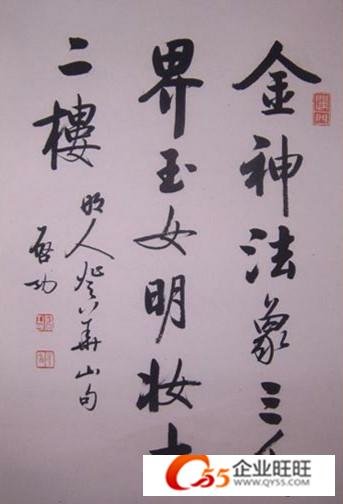 金神法象三千
界玉女明妆十
二樓
明人登華山句
启功
55 企业旺旺
WWW.QY55.COM